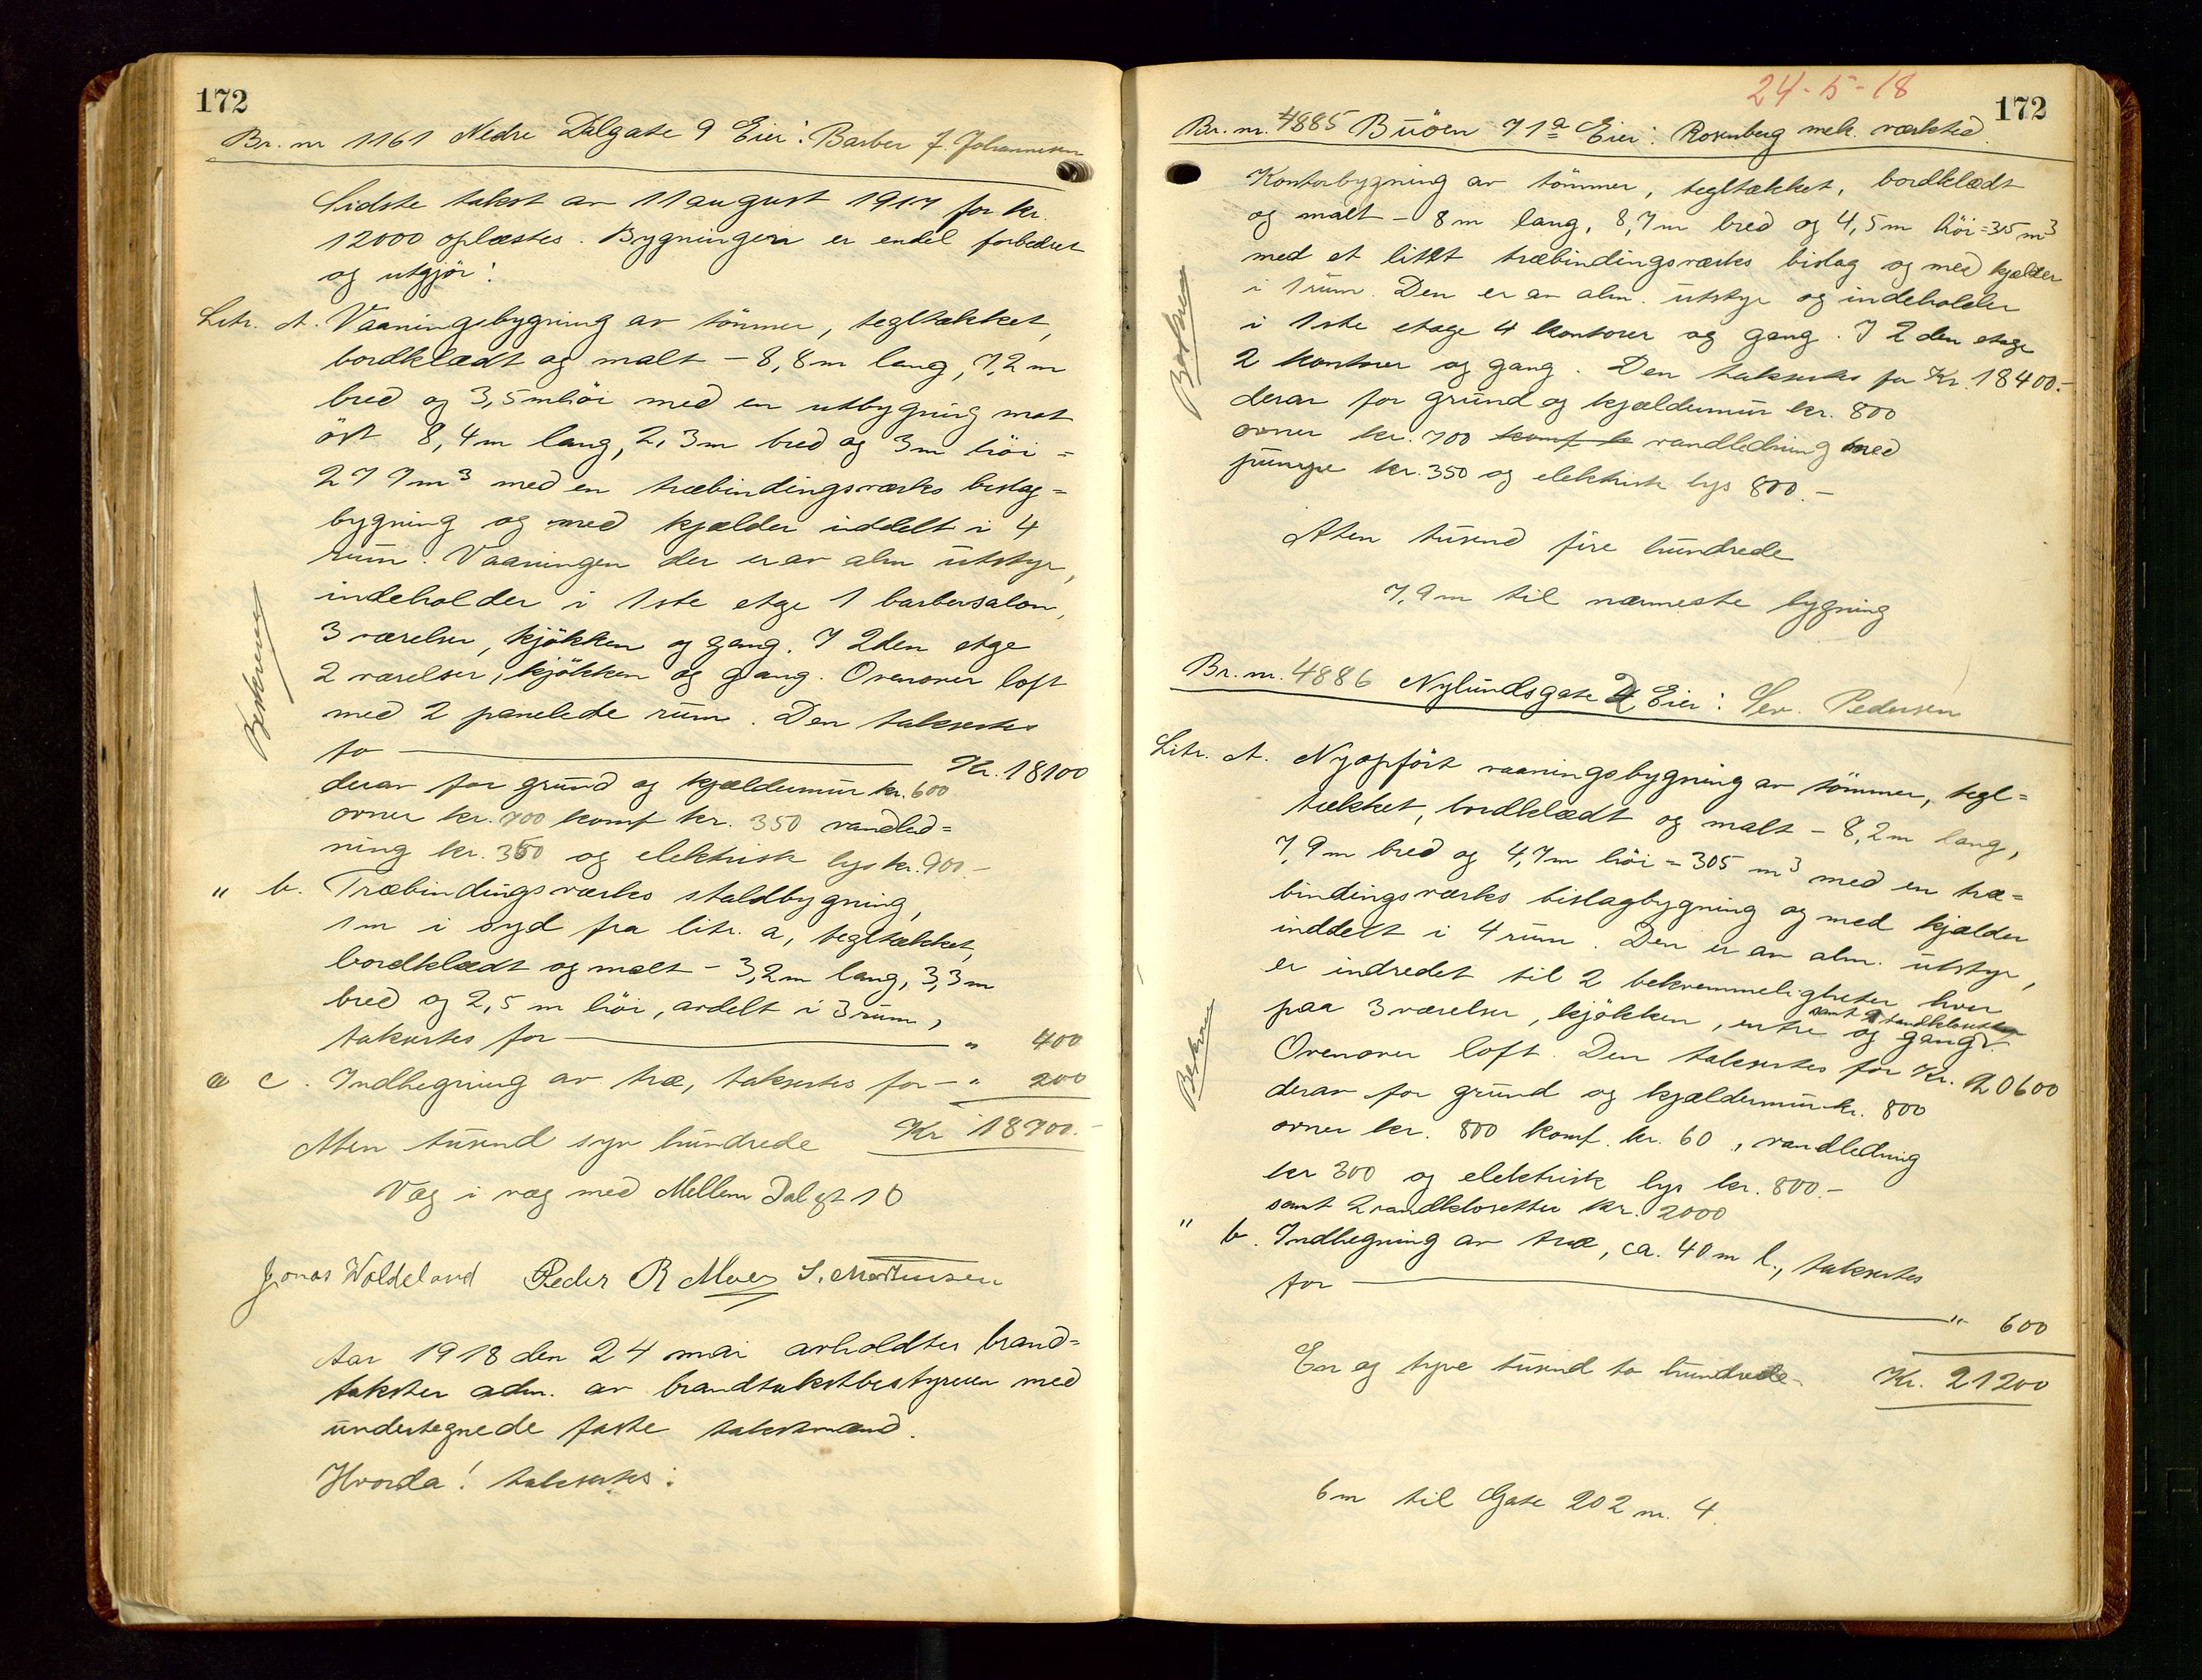 172
Br. nr 1161 Nedre Dalgate 9 Eier: Barber J. Johannesen
Sidste takst av 11 august 1917 for kr.
12000 oplæstes. Bygningen er endel forbedret
og utgjör:
Litr. A. Vaaningsbygning av tömmer, tegltækket,
bordklædt og malt - 8,8m lang, 7,2m
bred og 3,5m höi med en utbygning mot
öst 8,4m lang, 2,3m bred og 3m höi =
277m³ med en træbindingsværks bislag=
bygning og med kjælder inddelt i 4
rum. Vaaningen der er av alm utstyr,
indeholder i 1ste etge 1 barbersalon,
3 værelser, kjökken og gang. I 2den etge
2 værelser, kjökken og gang. Ovenover loft
med 2 panelede rum. Den takseres
for Kr. 18100
derav for grund og kjældermur kr. 600
ovner kr. 700 komf kr. 350 vandled=
ning kr. 350 og elektrisk lys kr. 900.-
Bekreves
" b. Træbindingsværks staldbygning,
1m i syd fra litr. a, tegltækket,
bordklædt og malt - 3,2m lang, 3,3m
bred og 2,5 m höi, avdelt i 3 rum,
takseres for " 400
" c. Indhegning av træ, takseres for - " 200
Atten tusend syv hundrede Kr 18700.-
Væg i væg med Mellem Dalgt 10
Jonas Woldeland Peder R Moey S. Martinsen
Aar 1918 den 24 mai avholdtes brand=
takster adm. av brandtakstbestyreren med
undertegnede faste takstmænd.
Hvorda! takseres:
24-5-18
172
Br. nr. 4885 Buöen 71a Eier: Rosenberg mek. værksted
Kontorbygning av tömmer, tegltækket, bordklædt
og malt - 8m lang, 8,7m bred og 4,5m höi = 315 m³
med et litet træbindingsværks bislag og med kjælder
i 1 rum. Den er av alm. utstyr og indeholder
i 1ste etage 4 kontorer og gang. I 2den etage
2 kontorer og gang. Den takseres for Kr. 18400.-
derav for grund og kjældermur kr. 800
ovner kr. 700 komf k vandledning med
pumpe kr. 350 og elektrisk lys 800.-
Atten tusend fire hundrede
7,9m til nærmeste bygning
Br. nr. 4886 Nylundsgate Eier: Sev. Pedersen
Litr. A. Nyopfört vaaningsbygning av tömmer, tegl=
tækket, bordklædt og malt - 8,2m lang,
7,9m bred og 4,7m höi = 305 m³ med en træ=
bindingsværks bislagbygning og med kjælder
inddelt i 4 rum. Den er av alm. utstyr,
er indredet til 2 bekvemmeligheter hver
paa 3 værelser, kjökken, entre og gang samt 2 vandklosetter
Ovenover loft. Den takseres for Kr. 20600
derav for grund og kjældermur kr. 800
ovner kr. 800 komf. kr. 60, vandledning
kr 300 og elektrisk lys kr. 800.-
samt 2 vandklosetter kr. 2000
" b. Indhegning av træ, ca. 40m l., takseres
for " 600
En og tyve tusend to hundrede Kr. 21200
6m til Gate 202 nr. 4.